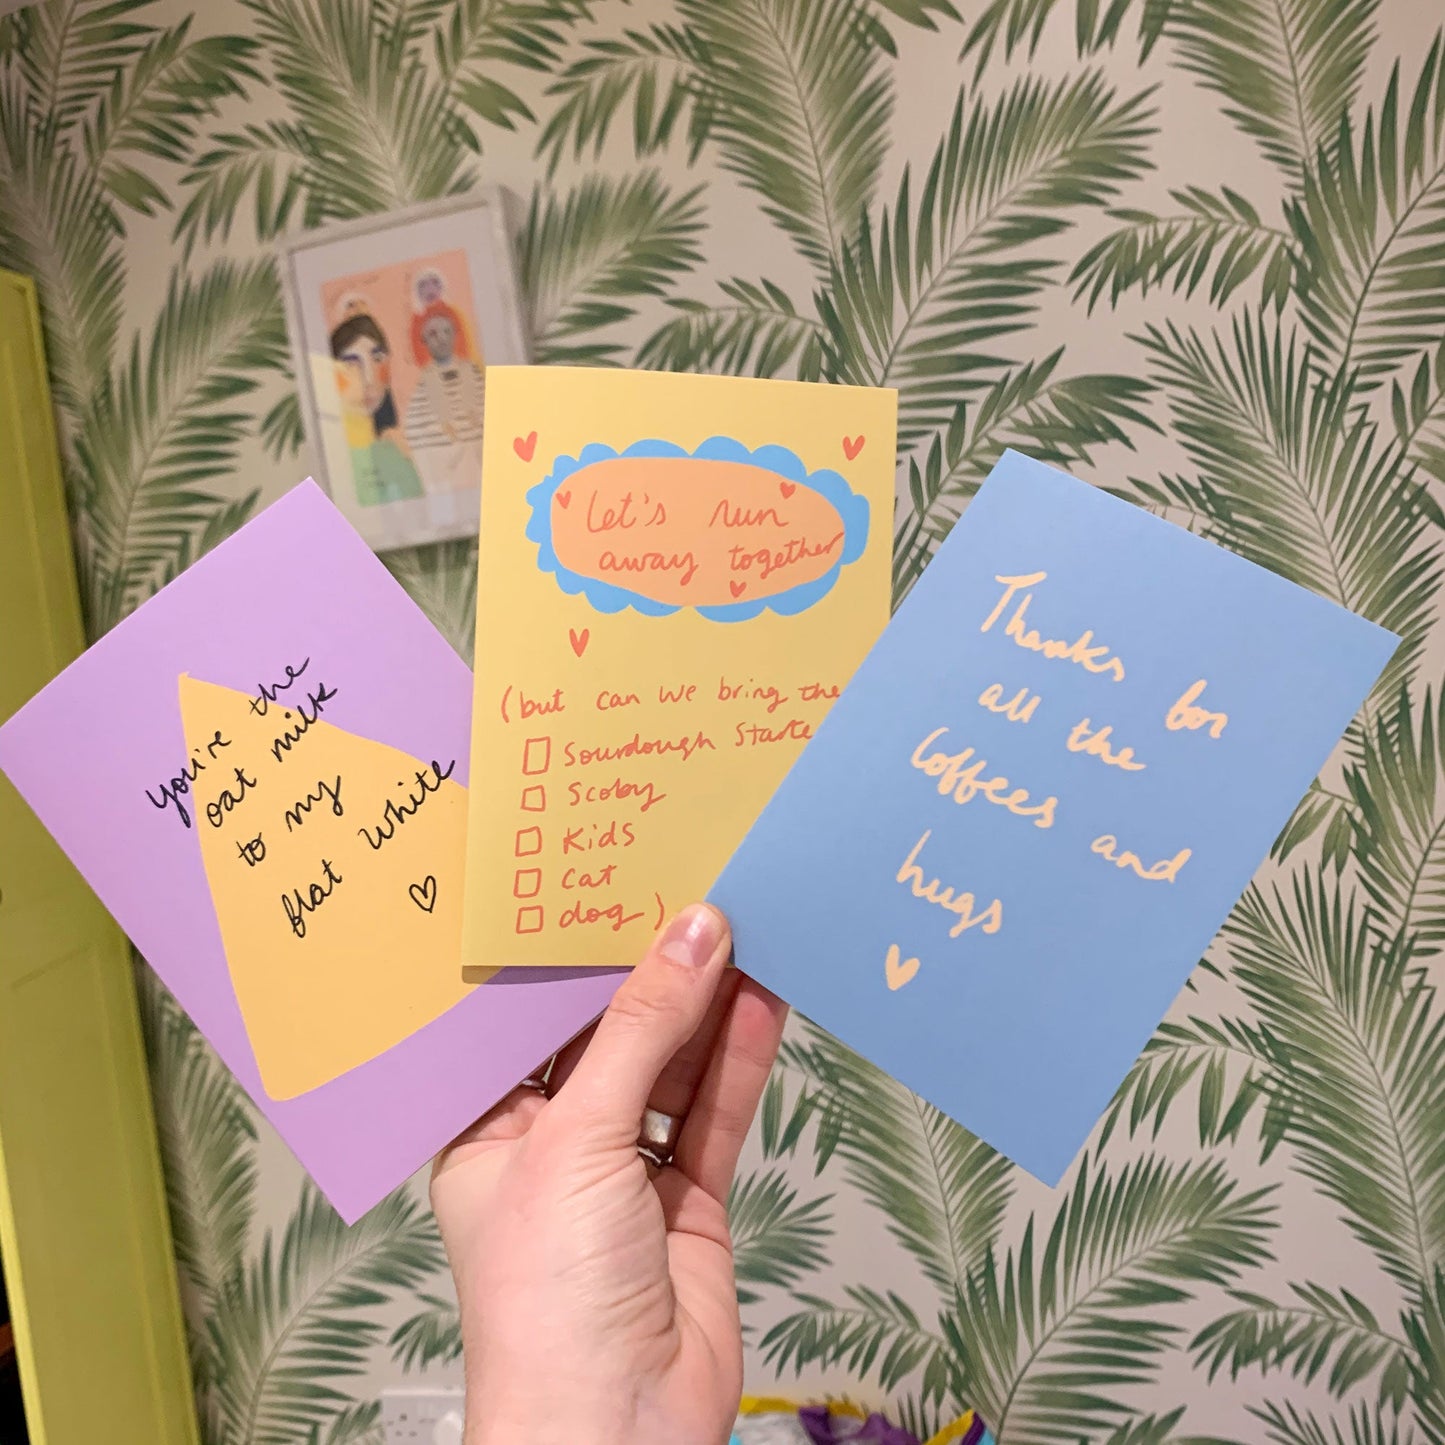 you're the
oat milk
to my
flat white
Let's run
away together
(but can we bring the
sourdough starte
Scoby
Kids
cat
dog)
Thanks for
all the
Coffees and
hugs